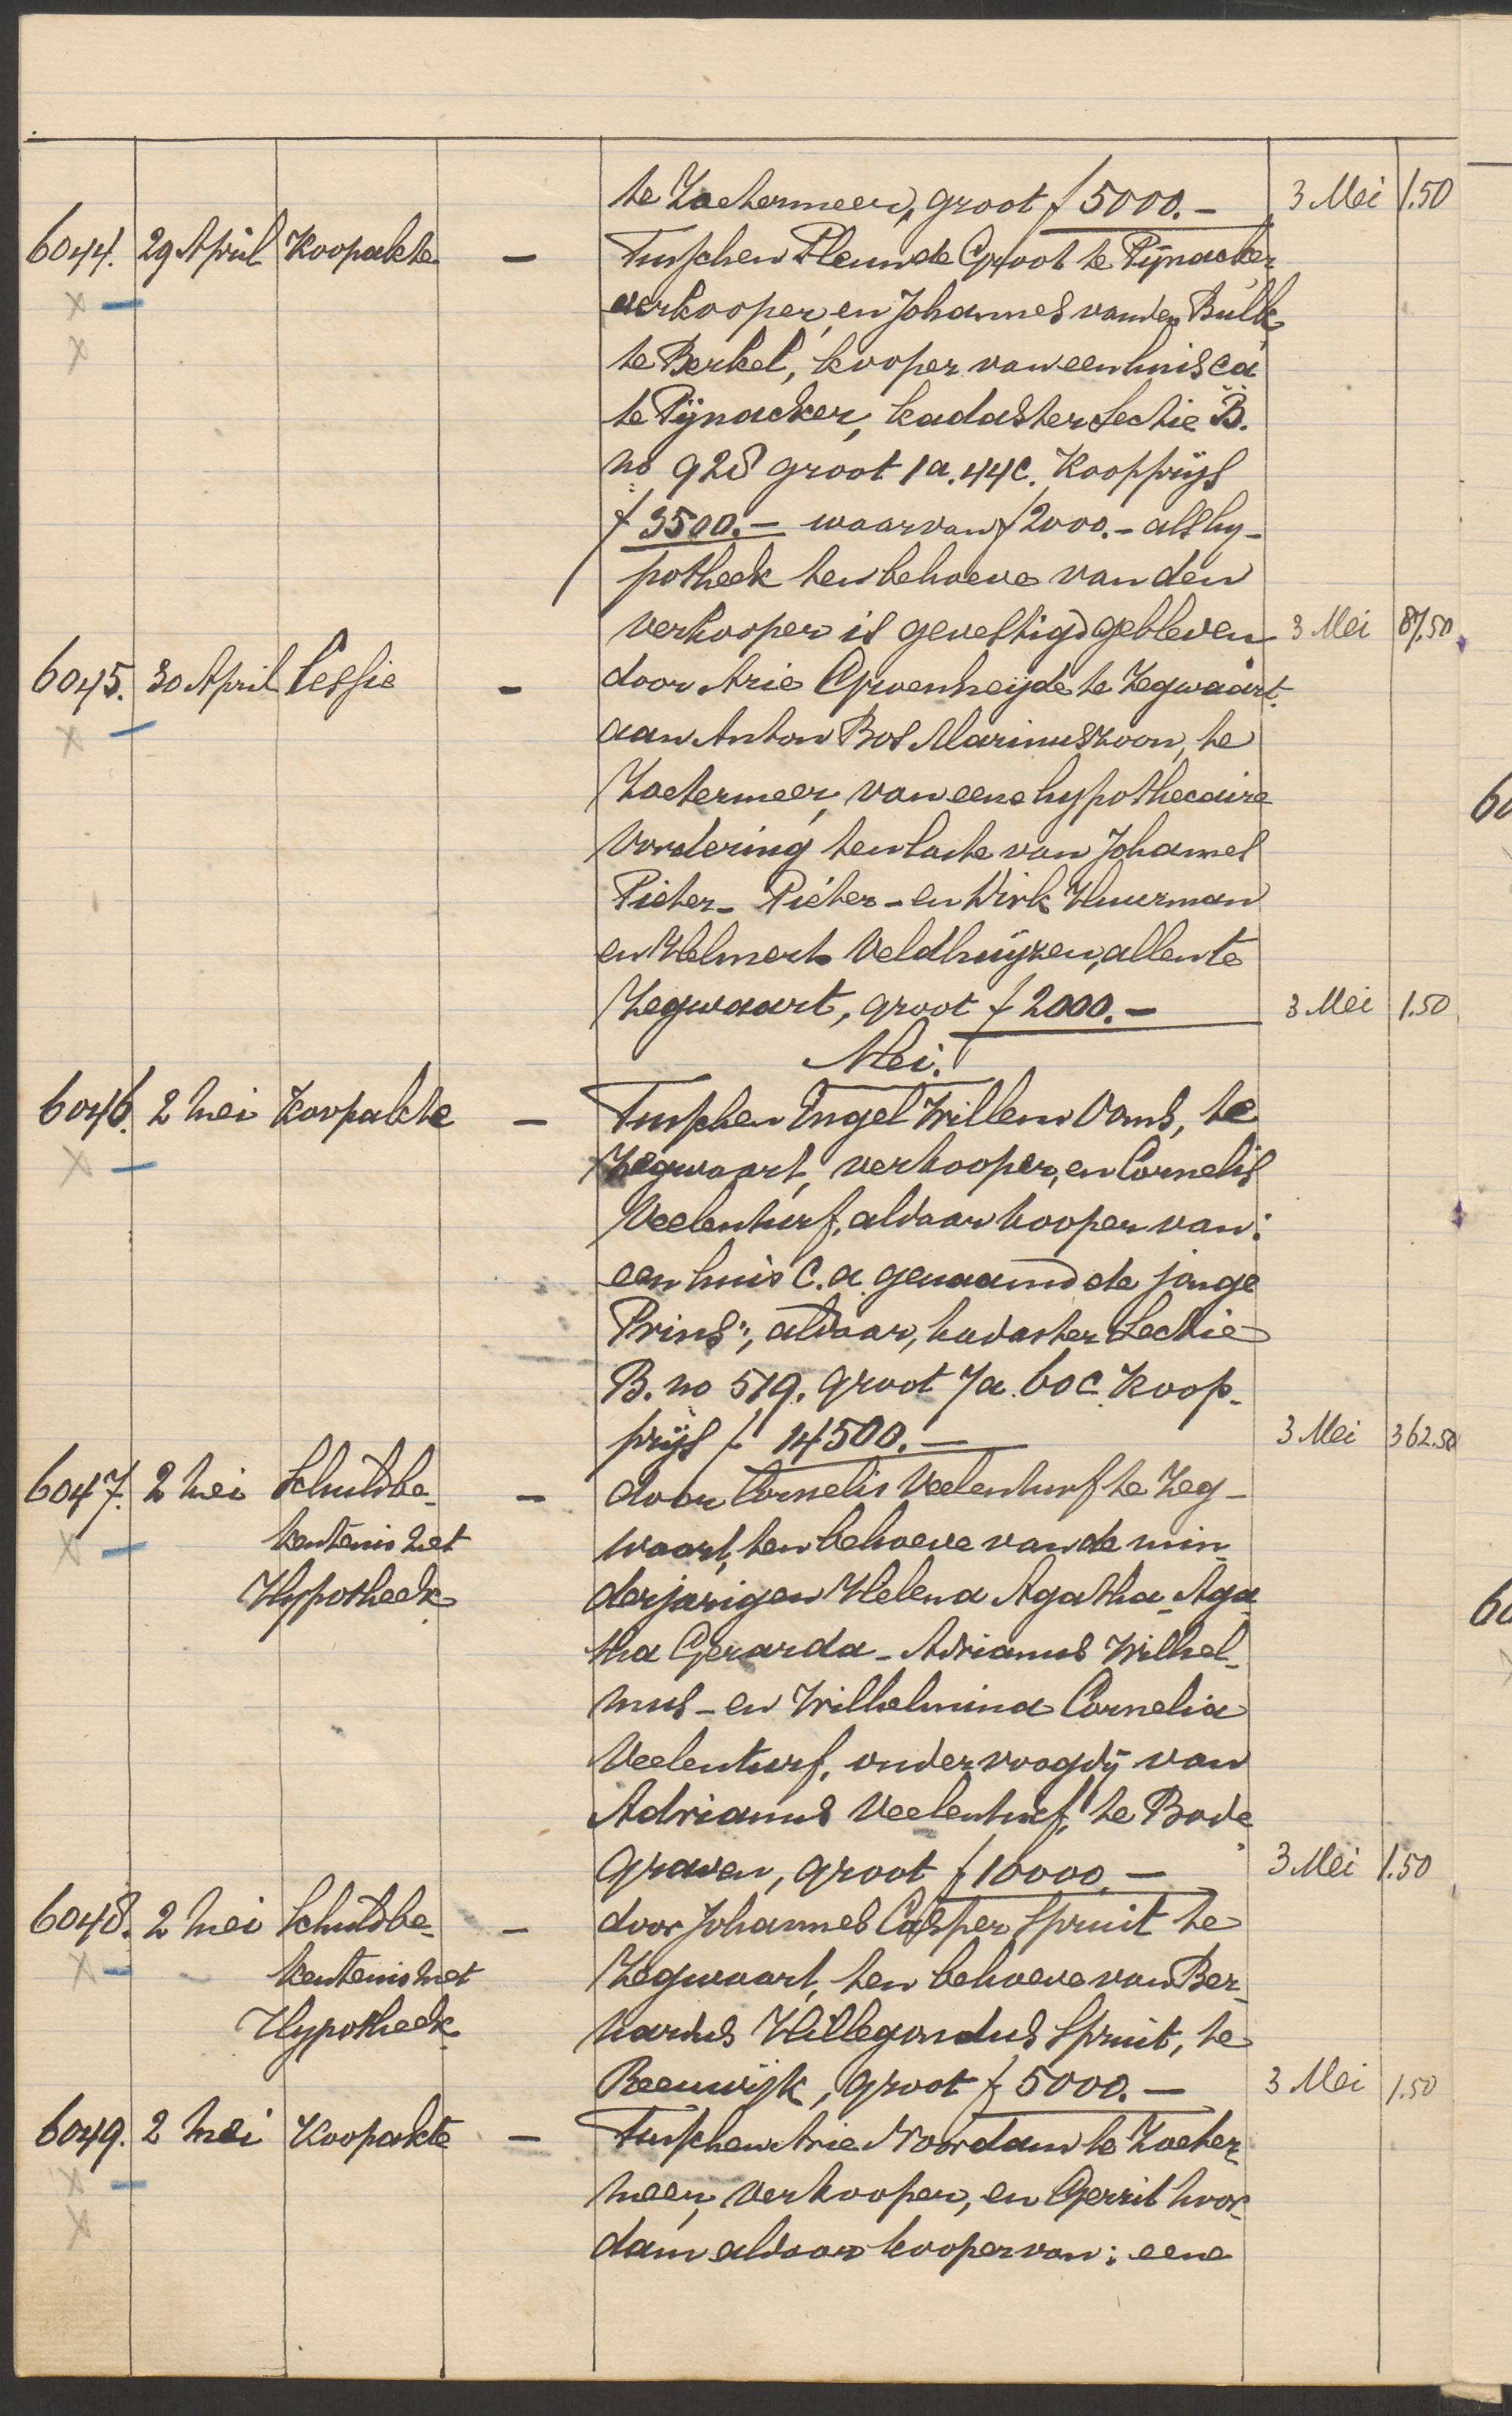 te Zoetermeer, groot f 5000.- 3 Mei 1.50
6044. 29 April Koopakte - Tusschen Pleun de Groot te Pijnacker
verkooper, en Johannes van den Bulk,
te Berkel, kooper van een huis ca
te Pijnacker, kadaster Sectie B.
no 928 groot 1a.44c. Koopprijs
f 3500.- waarvan f 2000.- als hy-
potheek ten behoeve van den
verkooper is gevestigd gebleven 3 Mei 87.50
6045. 30 April Cessie - door Arie Groenheijde te Zegwaart.
aan Anton Bos Marinuszoon, te
Zoetermeer, van eene hypothecaire
Vordering ten laste van Johannes
Pieter- Pieter- en Dirk Huurman
en Helmert Veldhuijzen, allen te
Zegwaart, groot f 2000.- 3 Mei 1.50
Mei.
6046. 2 Mei Koopakte - Tusschen Engel Willem Vons, te
Zegwaart, verkooper, en Cornelis
Veelenturf, aldaar kooper van:
een huis c.a. genaamd de jonge
Prins", aldaar, kadaster Sectie
B. no 519. groot 7a. 60c. Koop-
prijs f 14500.- 3 Mei 362.50
6047. 2 Mei Schuldbe- - door Cornelis Veelenturf te Zeg-
kentenis met waart, ten behoeve van de min-
Hypotheek. derjarigen Helena Agatha- Aga-
tha Gerarda- Adrianus Wilhel-
mus- en Wilhelmina Cornelia
Veelenturf, onder voogdij van
Adrianus Veelenturf, te Bode
graven, groot f 10000.- 3 Mei 1.50
6048. 2 Mei Schuldbe- - door Johannes Casper Spruit te
kentenis met Zegwaart, ten behoeve van Ber-
Hypotheek. nardus Hillegondus Spruit, te
Reeuwijk, groot f 5000.- 3 Mei 1.50
6049. 2 Mei Koopakte - Tusschen Arie Noordam te Zoeter-
meer, verkooper, en Gerrit Noor-
dam aldaar kooper van: eene